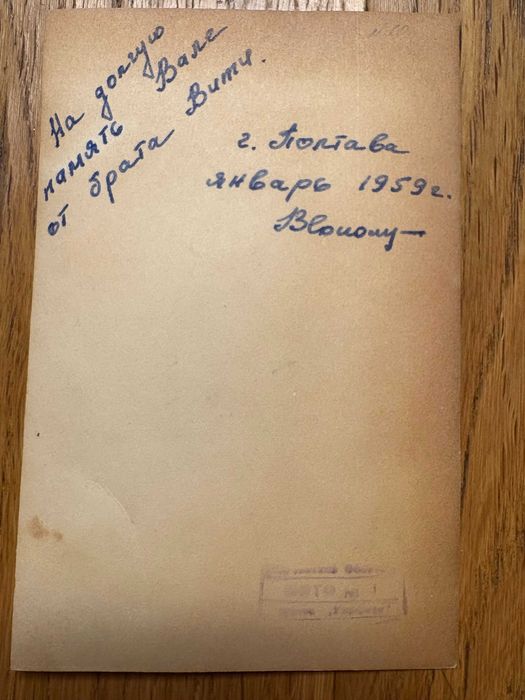 На долгую
память Вале
от брата Вити.
г. Полтава
январь 1959 г.